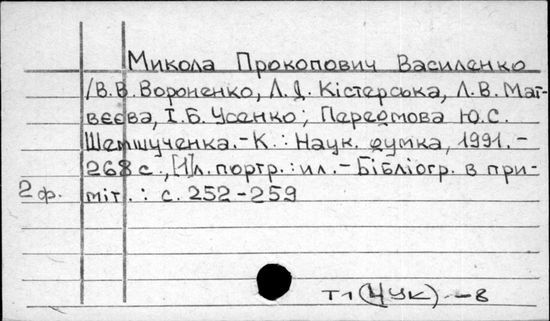 Микола Прокопович Василенко
/В.В.Вороненко, Л.Д.Кістерська, Л.В.Мат-
вєєва, І.Б.Усенко; Передмова Ю.С.
Шемшученка.-К.: Наук. думка, 1991.-
268с.,[1]л.портр.:ил.-Бібліогр. в при-
2ф. міт.: с. 252-259
Т1(4УК)-8